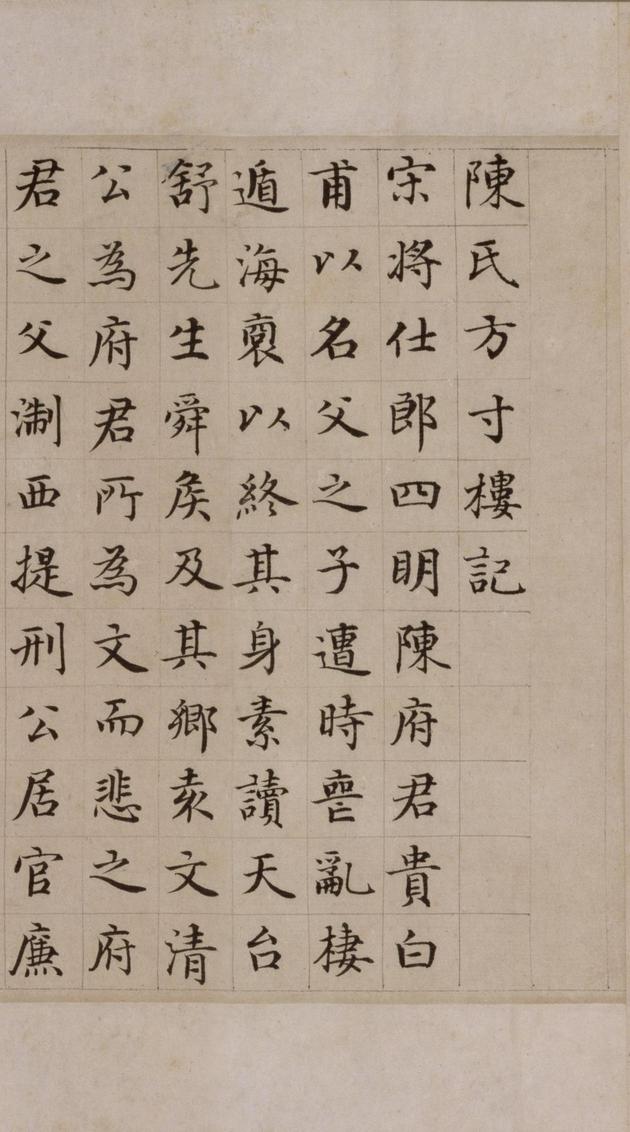 陳氏方寸樓記
宋將仕郎四明陳府君貴白
甫以名父之子遭時喪亂棲
遁海裏以終其身素讀天台
舒先生舜侯及其鄉袁文清
公為府君所為文而悲之府
君之父淛西提刑公居官廉